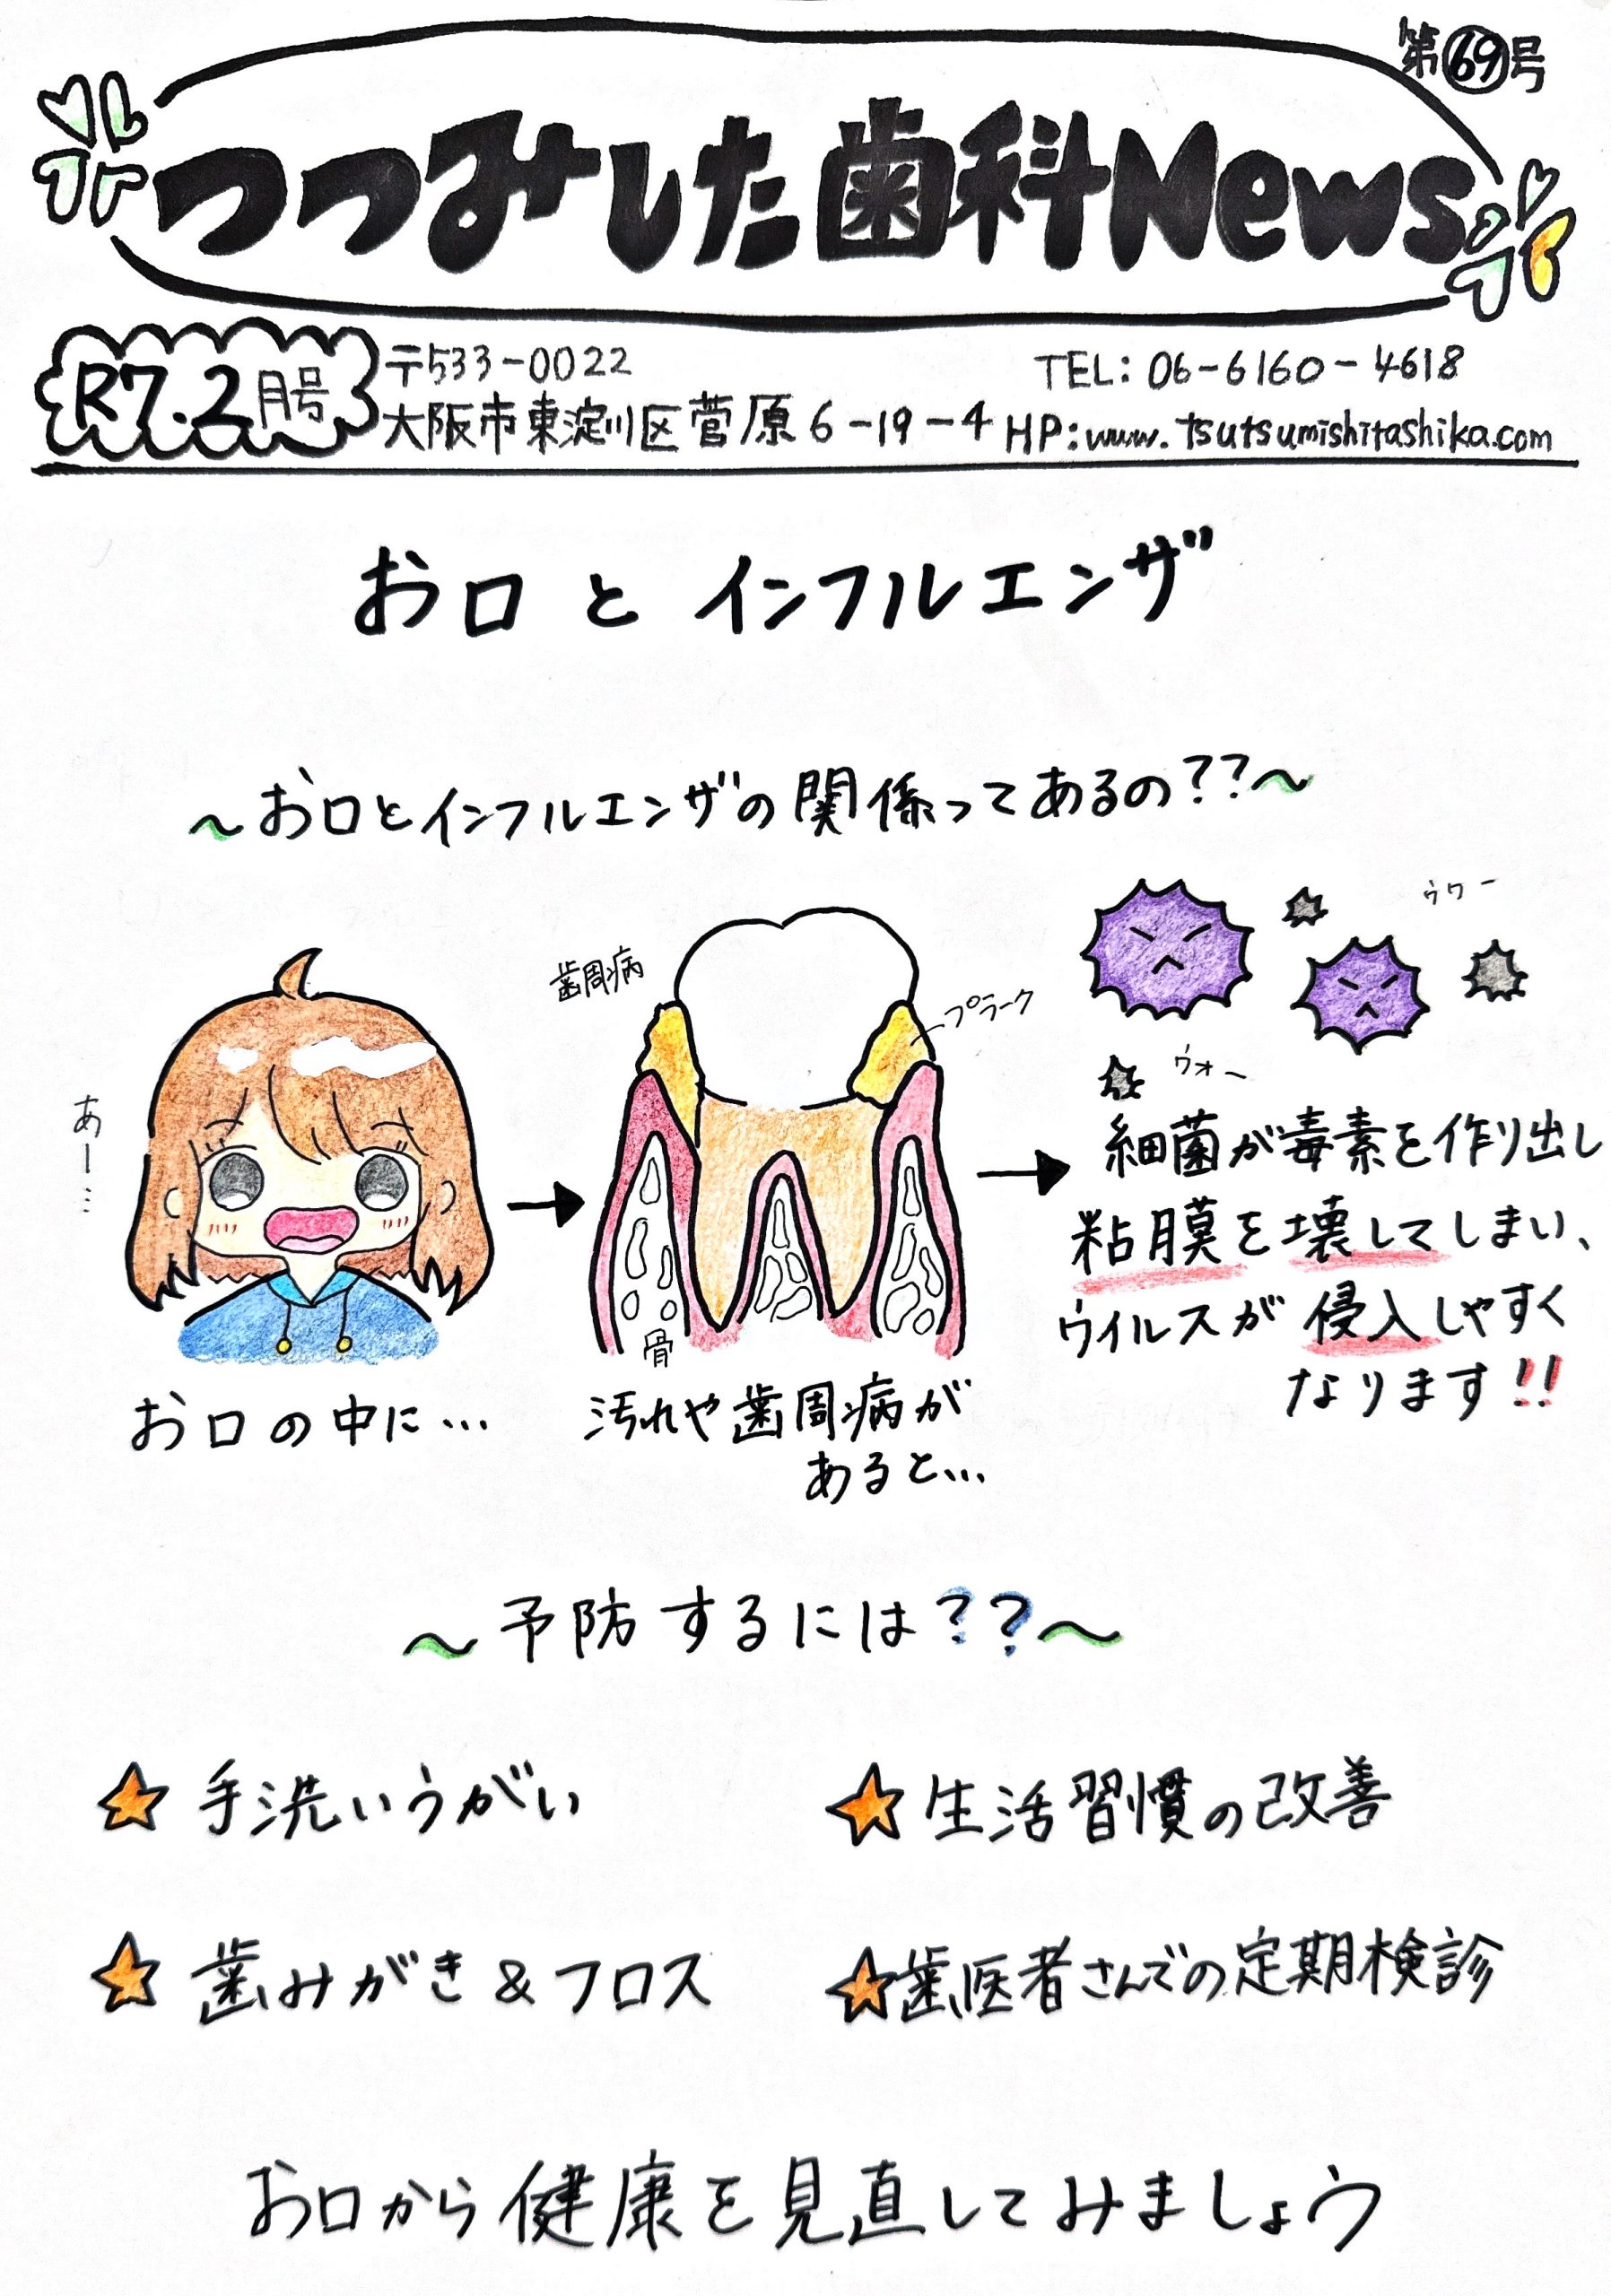 第69号
つつみした歯科News
R7.2月号
〒533-0022
大阪市東淀川区菅原6-19-4
TEL:06-6160-4618
HP:www.tsutsumishitashika.com
お口とインフルエンザ
～お口とインフルエンザの関係ってあるの??～
あー…
お口の中に…
歯周病
プラーク
骨
汚れや歯周病が
あると…
ウワー
ウォー
細菌が毒素を作り出し
粘膜を壊してしまい、
ウイルスが侵入しやすく
なります!!
～予防するには??～
★手洗いうがい
★生活習慣の改善
★歯みがき&フロス
★歯医者さんでの定期検診
お口から健康を見直してみましょう